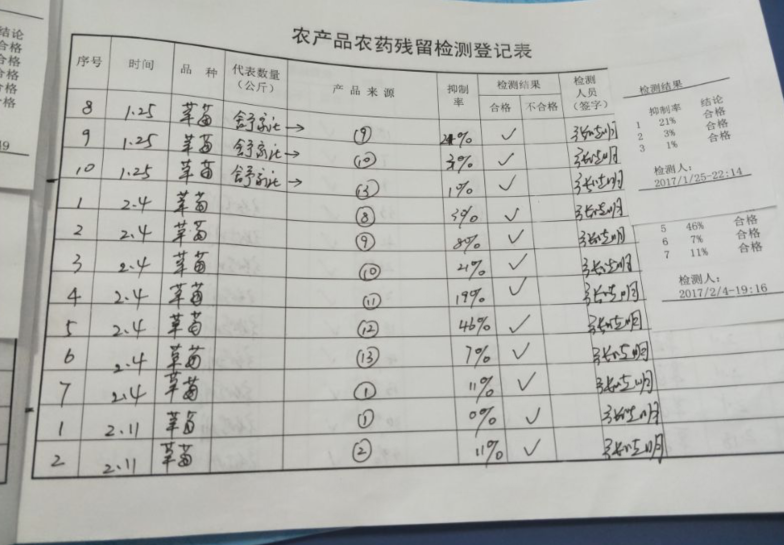 结论
合格
合格
合格
合格
农产品农药残留检测登记表
序号 时间 品种 代表数量(公斤) 产品来源 抑制率 检测结果 合格 不合格 检测人员(签字)
8 1.25 草莓 → ⑨ 21% ✓
9 1.25 草莓 → ⑩ 3% ✓
10 1.25 草莓 → ⑬ 1% ✓
1 2.4 草莓 ⑧ 3% ✓
2 2.4 草莓 ⑨ 8% ✓
3 2.4 草莓 ⑩ 21% ✓
4 2.4 草莓 ⑪ 19% ✓
5 2.4 草莓 ⑫ 46% ✓
6 2.4 草莓 ⑬ 7% ✓
7 2.4 草莓 ① 11% ✓
1 2.11 草莓 ① 0% ✓
2 2.11 草莓 ② 11% ✓
检测结果
抑制率 结论
1 21% 合格
2 3% 合格
3 1% 合格
检测人:
2017/1/25-22:14
5 46% 合格
6 7% 合格
7 11% 合格
检测人:
2017/2/4-19:16